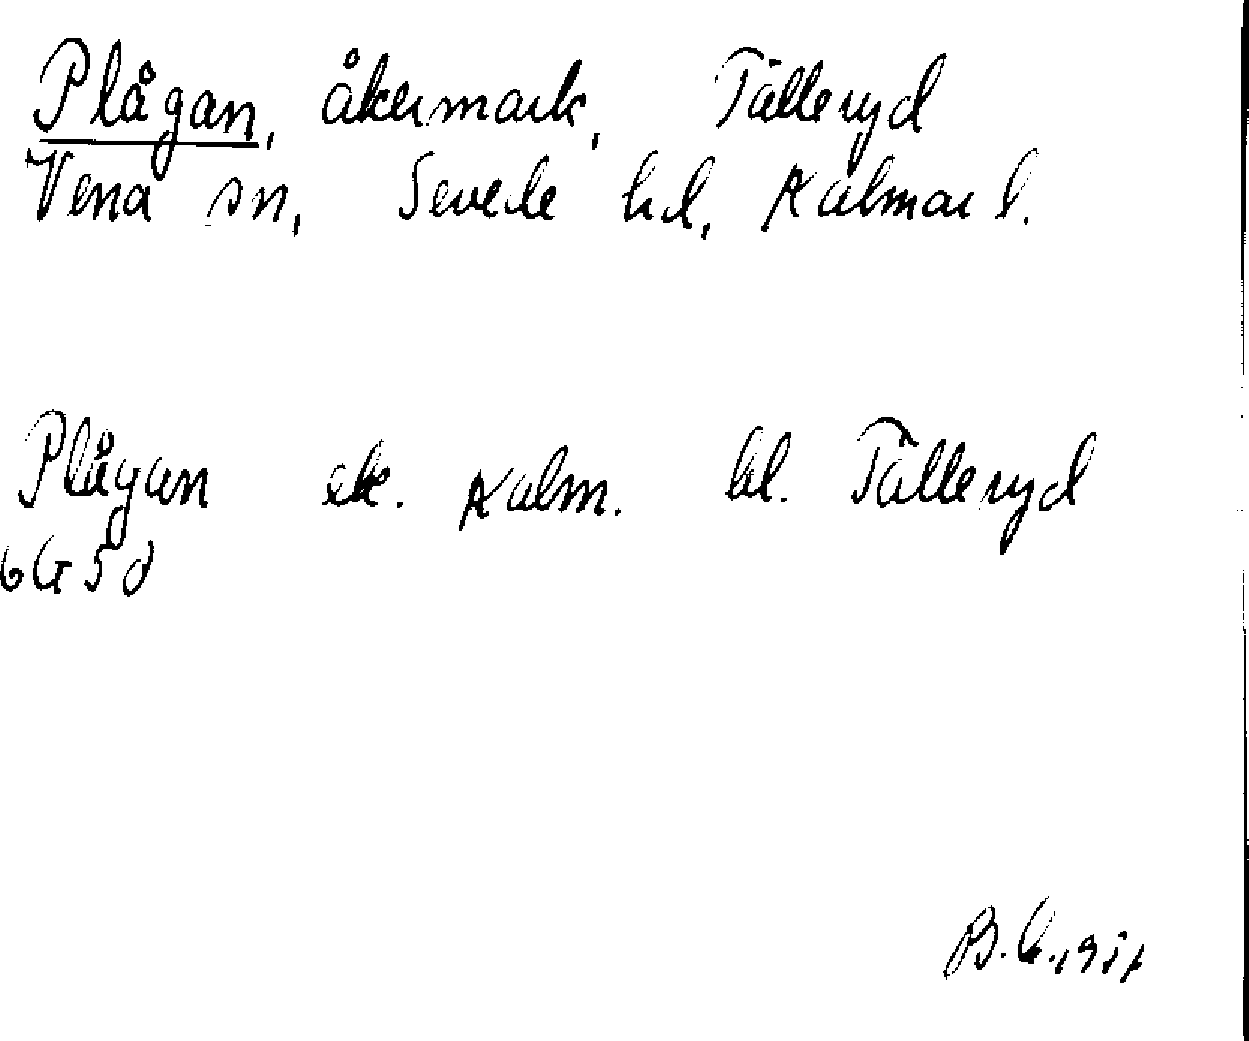 Plågan, åkermark, Tälleryd
Vena sn, Sevede hd, Kalmar l.
Plågan ek. Kalm. bl. Tälleryd
6G5d